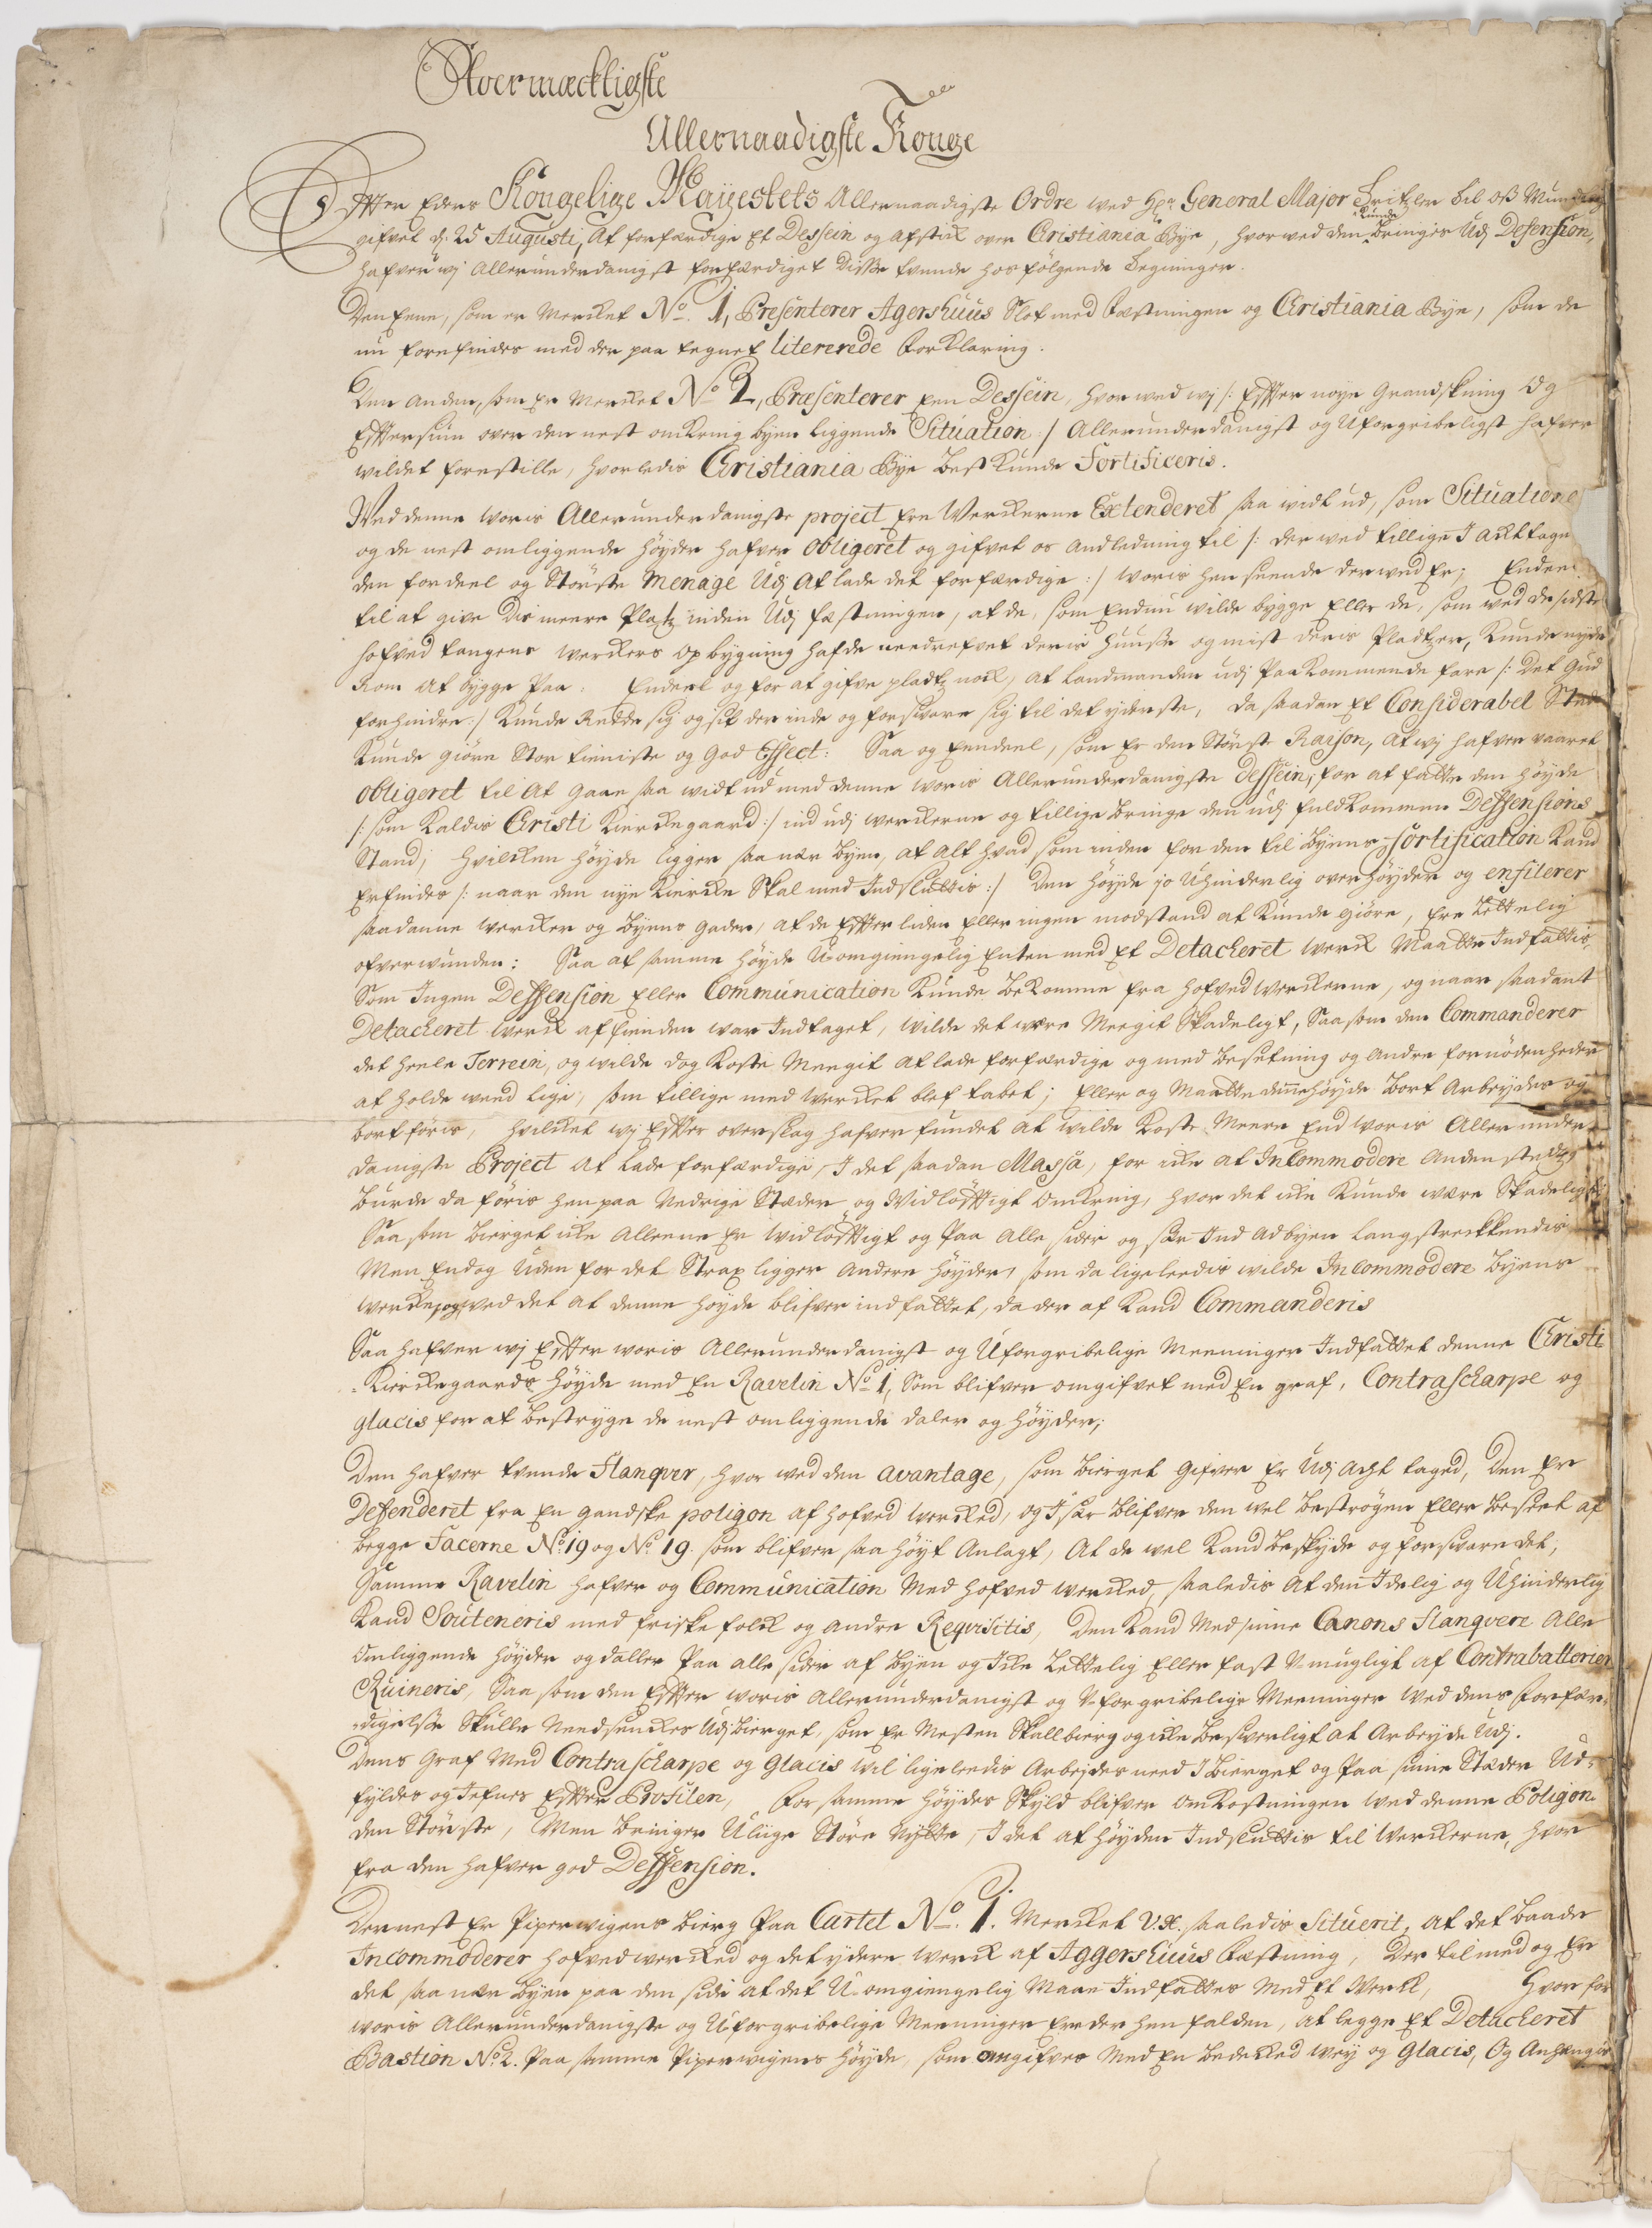 Stoermæcktigste
Allernaadigste Konge
Effter Eders Kongelige Mayestets Allernaadigste Ordre ved Hr General Major til oß
gifvet d. 25 Augusti, At forfærdige Et Dessein og afstik over Cristiania Bye, hvorved den kunde bringes Udj Defension,
hafver wj Allerunderdanigst forfærdiget Disse tvende hosfölgende tegninger.
Den Eene, som er Mercket No. 1, Presenterer Agershuus Slot med Fæstningen og Cristiania Bye, som de
nu forefindes med der paa tegnet litererede Forklaring.
Den anden, som Er Mercket No 2, Præsenterer Een Dessein, hvorved wj /: Effter nöye Grandskning Og
Efftersiun over den nest omkring byen liggende Situation :/ Allerunderdanigst og Uforgribeligst hafver
wildet forestille, hvorledis Cristiania Bye best kunde Fortificeris.
Ved denne woris Allerunderdanigste project Ere Werckerne Extenderet saa widt ud, som Situationen
og de nest omliggende höyder hafver obligeret og gifvet os andledning til /: der ved tillige I acttage
den fordeel og Störste Menage Udj At lade det forfærdige :/ woris henseende derved Er; Endeel
til at give Dis meere Platz inden Udj fæstningen, at de, som Endnu wilde bygge Eller de, som ved de sidste
hofved tangens werckers opbygning hafde needrefvet deris Huuse og mist deris Pladtzer, kunde nyde
Rom at bygge Paa: Endeel og for at gifve pladtz nock, at Landmanden udj Paakommende fare /: Det Gud
forhindre :/ kunde Redde sig og sit der inde og forsvare sig til det yderste, da saadan Et Considerabel Stad
kunde giöre Stor tieniste og God Effect: Saa og Eendeel, som Er den Störst Raison, at wj hafver vaaret
obligeret til At gaae saa widt ud med denne woris Allerunderdanigste dessein, for at fatte den höyde
/: som kaldis Cristi Kierckegaard :/ ind udj werckerne og tillige bringe den udj fuldkommen Deffensions
Stand, hvilcken höyde ligger saa nær byen, at alt hvad, som inden for den til byens fortification kand
Erfindes /: naar den nye Kiercke Skal med Indsluttis :/ Den höyde jo Uhinderlig overhöyder og enfilerer
saadanne wercker og byens gader, at de Effter liden Eller ingen modstand at kunde giöre, Ere lettelig
ofvervunden: Saa at samme höyde U-omgiengelig Enten med Et Detacheret werck Maatte Indfattis,
Som Ingen Deffension Eller Communication kunde bekomme fra hofvedwerckerne, og naar saadant
Detacheret werck af fienden war Indtaget, wilde det være Meegit Skadeligt, Saasom den Commanderer
det heele Terrein, og wilde dog koste Meegit at lade forfærdige og med besetning og andre fornödenheder
at holde wed lige, som tillige med werket blef tabet; Eller og Maatte denne höyde bort Arbeydes og
bortföris, hvilcket wj Effter overslag hafver fundet at wilde koste Meere End woris Allerunder
danigste Project At lade forfærdige, I det saadan Massa, for icke at Incommodere anden stedtz,
burde da föris hen paa Nedrige Stæder og Widlöfftigt omkring, hvor det icke kunde være Skadeligt,
Saasom bierget icke Alleene Er widlöfftigt og Paa Alle sider og sær Ind ad byen langstreckkendis
Men Endog Uden for det Strax ligger Andere höyder, som da ligeledis wilde Incommodere byens
wercker, og wed det at denne höyde blifver indfattet, da der af kand Commanderis
Saa hafver wj Effter woris Allerunderdanigst og Uforgribelige Meeninger Indfattet denne Cristi
-Kierckegaards höyde med En Ravelin No 1, Som blifver omgifvet med En graf, Contrascharpe og
glacis for at bestryge de nest omliggende daler og höyder;
Den hafver tvende Flanqver, hvor ved den avantage, som bierget gifver Er Udj acht taged, Den Er
Deffenderet fra En gandske poligon af hofved wercked, og Især blifver den wel beströgen Eller beseet af
begge Facerne No 19 og No 19. som blifver saa höyt Anlagt, At de wel kand beskyde og forsvare det,
Samme Ravelin hafver og Communication Med hofved wercked, saaledis at den Idelig og Uhinderlig
kand Souteneris med friske folck og andre Reqvisitis, Den kand Med sine Canons Flanqvere Alle
omliggende höyder og daller Paa alle sider af byen og Icke lettelig Eller fast U-mugligt af Contrabatterier
Ruineris, Saasom den Effter woris Allerunderdanigst og U-forgribelige Meeninger wed dens forfær-
-digelse Skulle Needsenckes Udj bierget, som Er Mesten Skallbierg og icke besverligt at Arbeyde Udj.
Dens Graf Med Contrascharpe og Glacis wil ligeleedis Arbejdes need I bierget og Paa sinne Stæder Ud-
fyldes og Iefnes Effter Profilen, For samme höydes Skyld blifver omkostningen wed denne Poligon
den Störste, Men bringer Uliige Störe Nÿtte, I det at höyden Indsluttis til werckerne, hvor
fra den hafver god Deffension.
Dernest Er Piperwigens bierg Paa Cartet No. 1. Mercket V.X. saaledis Situerit, at det baade
Incommoderer hofvedwercked og det ydere werck af Aggershuus Fæstning, Der til med og Er
det saa nær byen paa den side at det U-omgiengelig Maae Indfattes Med Et Werck, Hvorfor
woris Allerunderdanigste og Uforgribelige Meeninger Er der hen falden, at legge Et Detacheret
Bastion No 2. Paa samme Piperwigens höyde, som omgifves Med En bedecked wey og Glacis, Og Anhengis